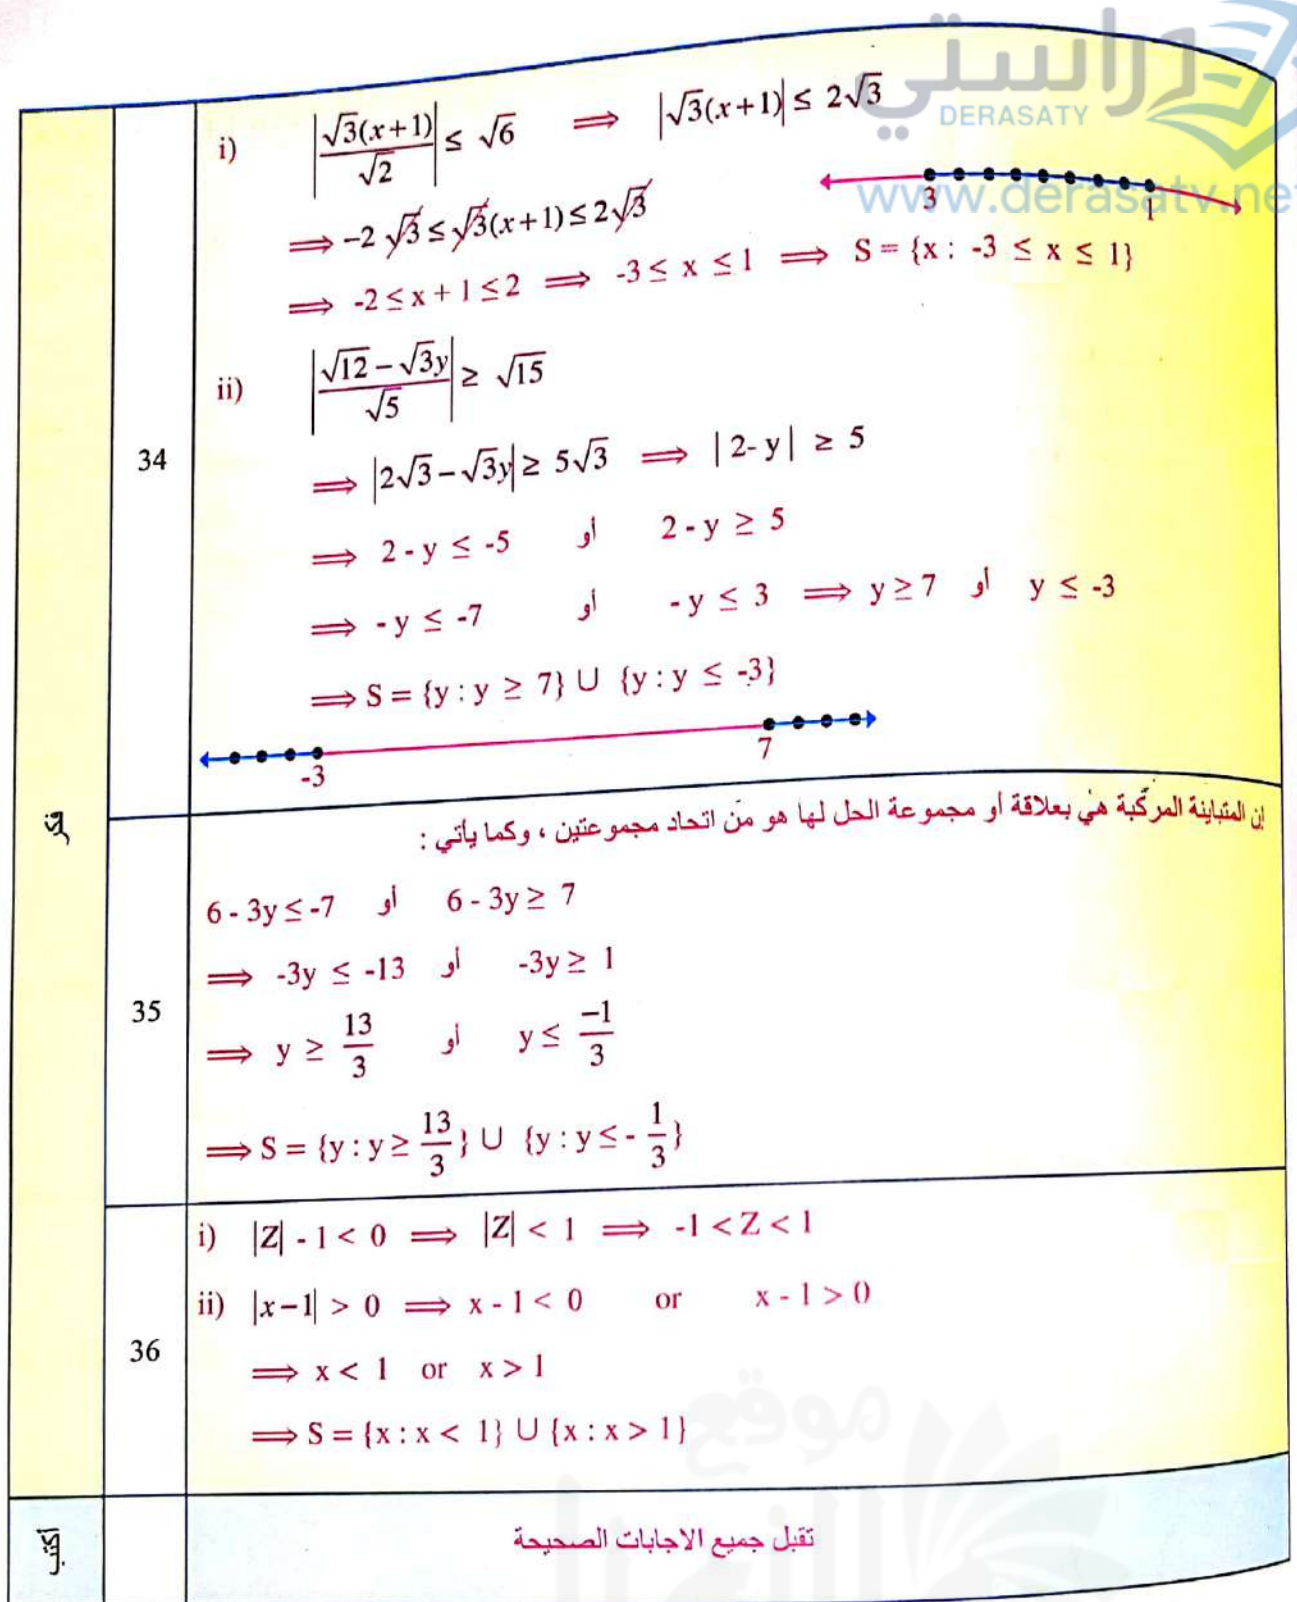 دراستي
DERASATY
www.derasaty.ne
34
i) |√3(x+1)/√2| ≤ √6 ⟹ |√3(x+1)| ≤ 2√3
3 1
⟹ -2√3 ≤ √3(x+1) ≤ 2√3
⟹ -2 ≤ x + 1 ≤ 2 ⟹ -3 ≤ x ≤ 1 ⟹ S = {x : -3 ≤ x ≤ 1}
ii) |(√12 - √3y)/√5| ≥ √15
⟹ |2√3 - √3y| ≥ 5√3 ⟹ | 2- y | ≥ 5
⟹ 2 - y ≤ -5 أو 2 - y ≥ 5
⟹ - y ≤ -7 أو - y ≤ 3 ⟹ y ≥ 7 أو y ≤ -3
⟹ S = {y : y ≥ 7} ∪ {y : y ≤ -3}
-3 7
فكر
35
إن المتباينة المركبة هي بعلاقة أو مجموعة الحل لها هو من اتحاد مجموعتين ، وكما يأتي :
6 - 3y ≤ -7 أو 6 - 3y ≥ 7
⟹ -3y ≤ -13 أو -3y ≥ 1
⟹ y ≥ 13/3 أو y ≤ -1/3
⟹ S = {y : y ≥ 13/3} ∪ {y : y ≤ - 1/3}
36
i) |Z| - 1 < 0 ⟹ |Z| < 1 ⟹ -1 < Z < 1
ii) |x-1| > 0 ⟹ x - 1 < 0 or x - 1 > 0
⟹ x < 1 or x > 1
⟹ S = {x : x < 1} ∪ {x : x > 1}
موقع
أكتب
تقبل جميع الاجابات الصحيحة